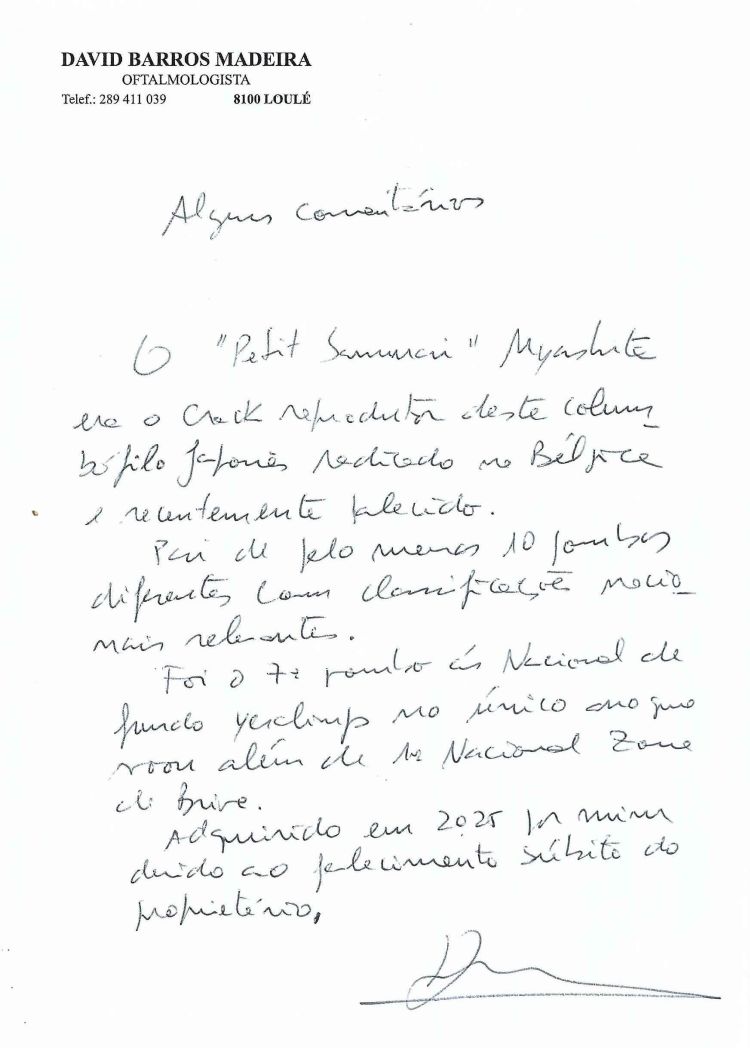 DAVID BARROS MADEIRA
OFTALMOLOGISTA
Telef.: 289 411 039 8100 LOULÉ
Alguns comentários
O "Petit Samurai" Myashita
era o Crack reprodutor deste colum
bófilo Japonês radicado na Bélgica
e recentemente falecido.
Pai de pelo menos 10 pombos
diferentes com classificações nacio
nais relevantes.
Foi o 7º pombo ás Nacional de
fundo yearlings no único ano que
voou além de 1º Nacional Zona
de Brive.
Adquirido em 2025 por mim
devido ao falecimento súbito do
proprietário,